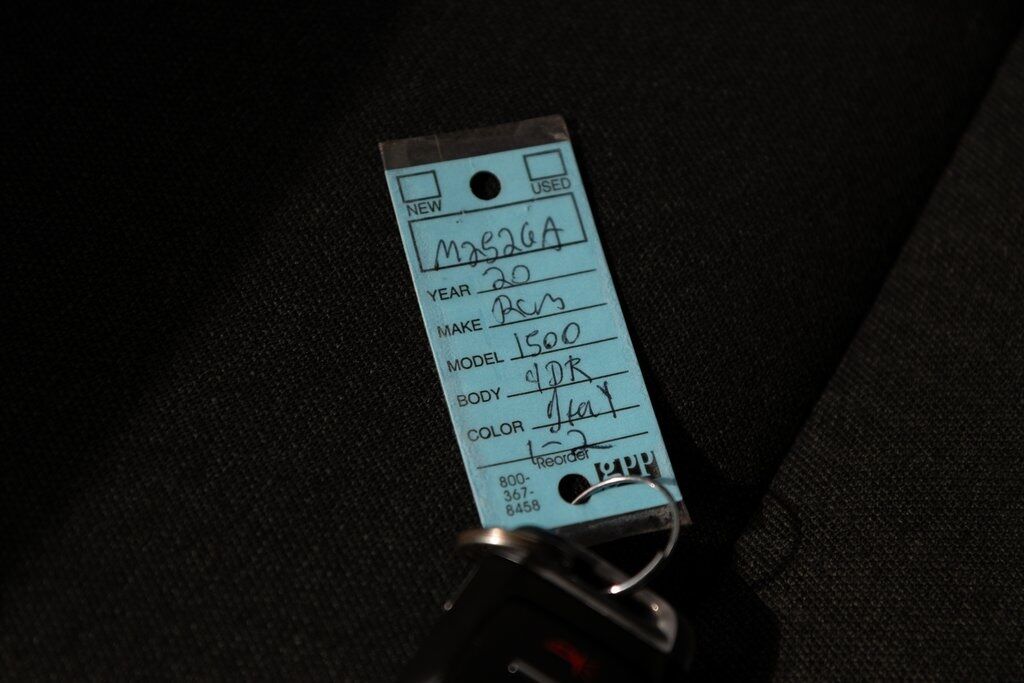 NEW USED
M2526A
YEAR 20
MAKE Ram
MODEL 1500
BODY 4DR
COLOR gray
1-2
Reorder gpp
800-
367-
8458